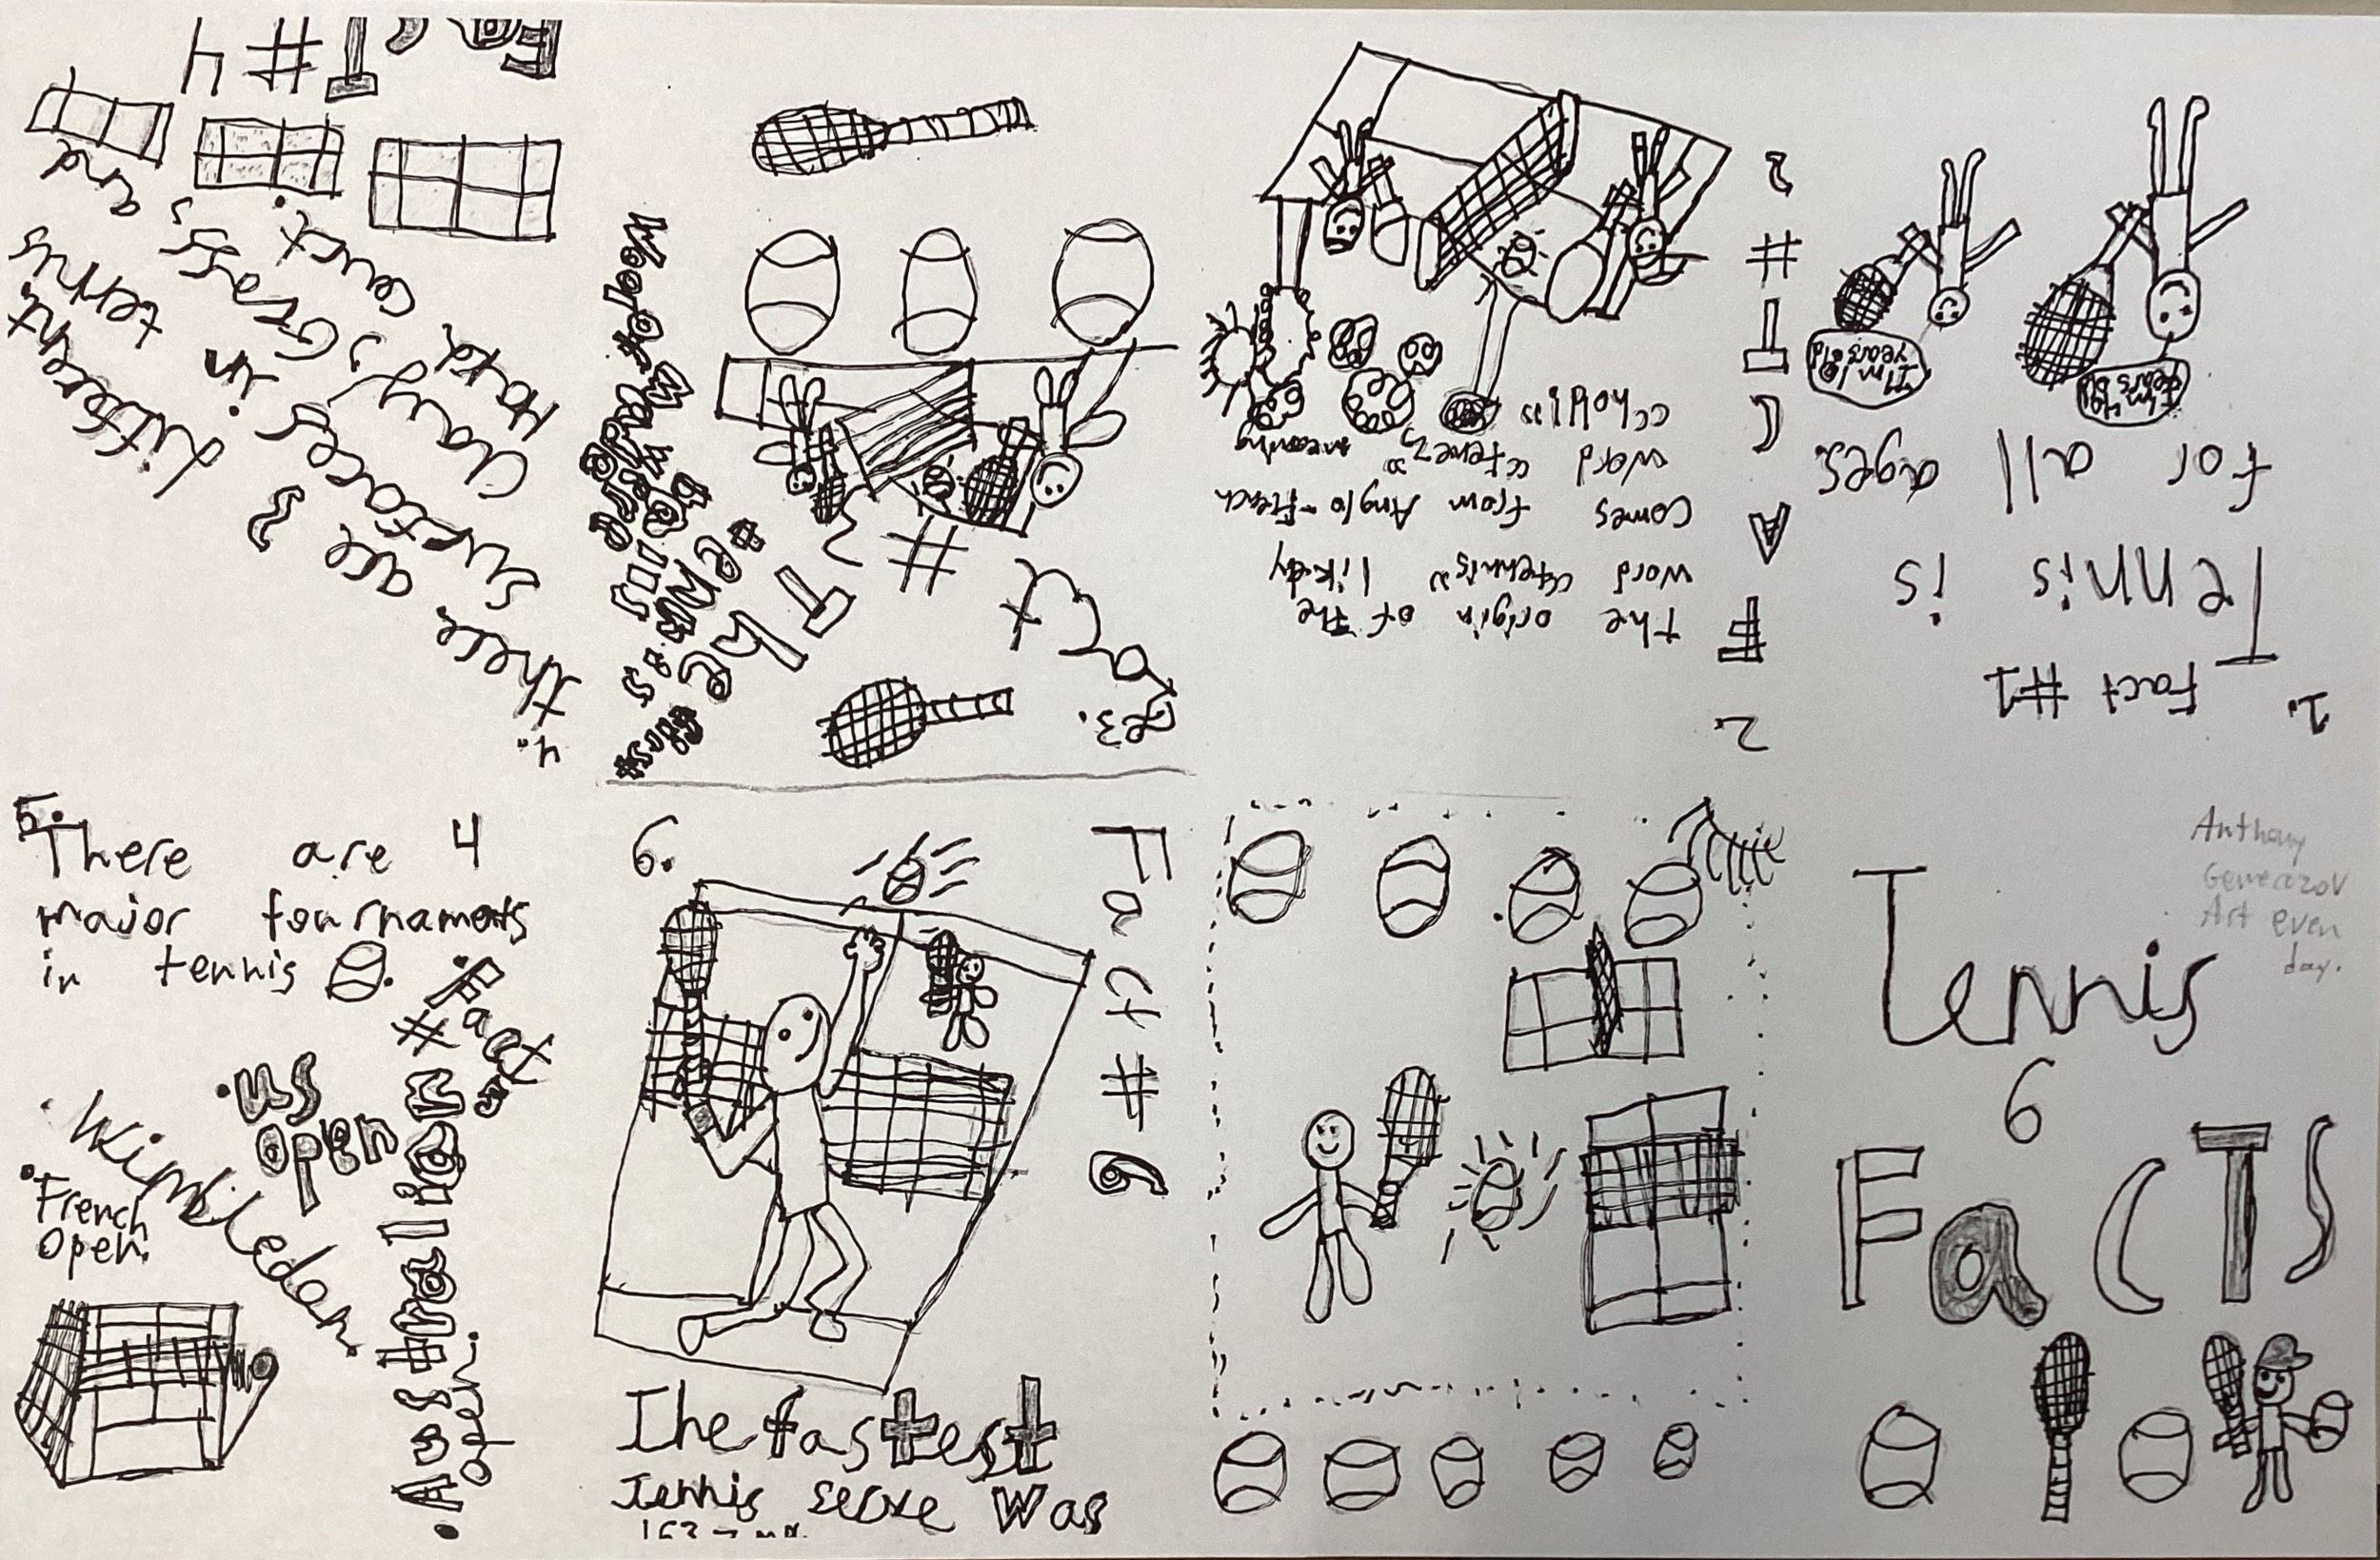 Anthony
Art even
day.
Tennis
6
FacTS
1.
Fact #1
Tennis is
for all ages.
I'm
years old
I'm 10
years old
2.
FACT #2
the origin of the
word “tennis” likely
comes from Anglo-french
word “tenez” meaning
“hold!”
3.
Fact #3
The
tennis
going
4.
there are 3
different
surfaces in tennis
Clay, Grass, and
Hard court.
FacT #4
5.
There are 4
major tournaments
in tennis
Fact
#5
• US
open
• Wimbledon
• French
Open.
• Australian
open.
6.
Fact #6
The fastest
Tennis serve was